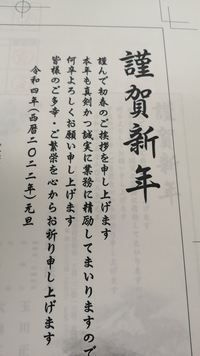 謹賀新年
謹んで初春のご挨拶を申し上げます
本年も真剣かつ誠実に業務に精励してまいりますので
何卒よろしくお願い申し上げます
皆様のご多幸・ご繁栄を心からお祈り申し上げます
令和四年(西暦二〇二二年)元旦